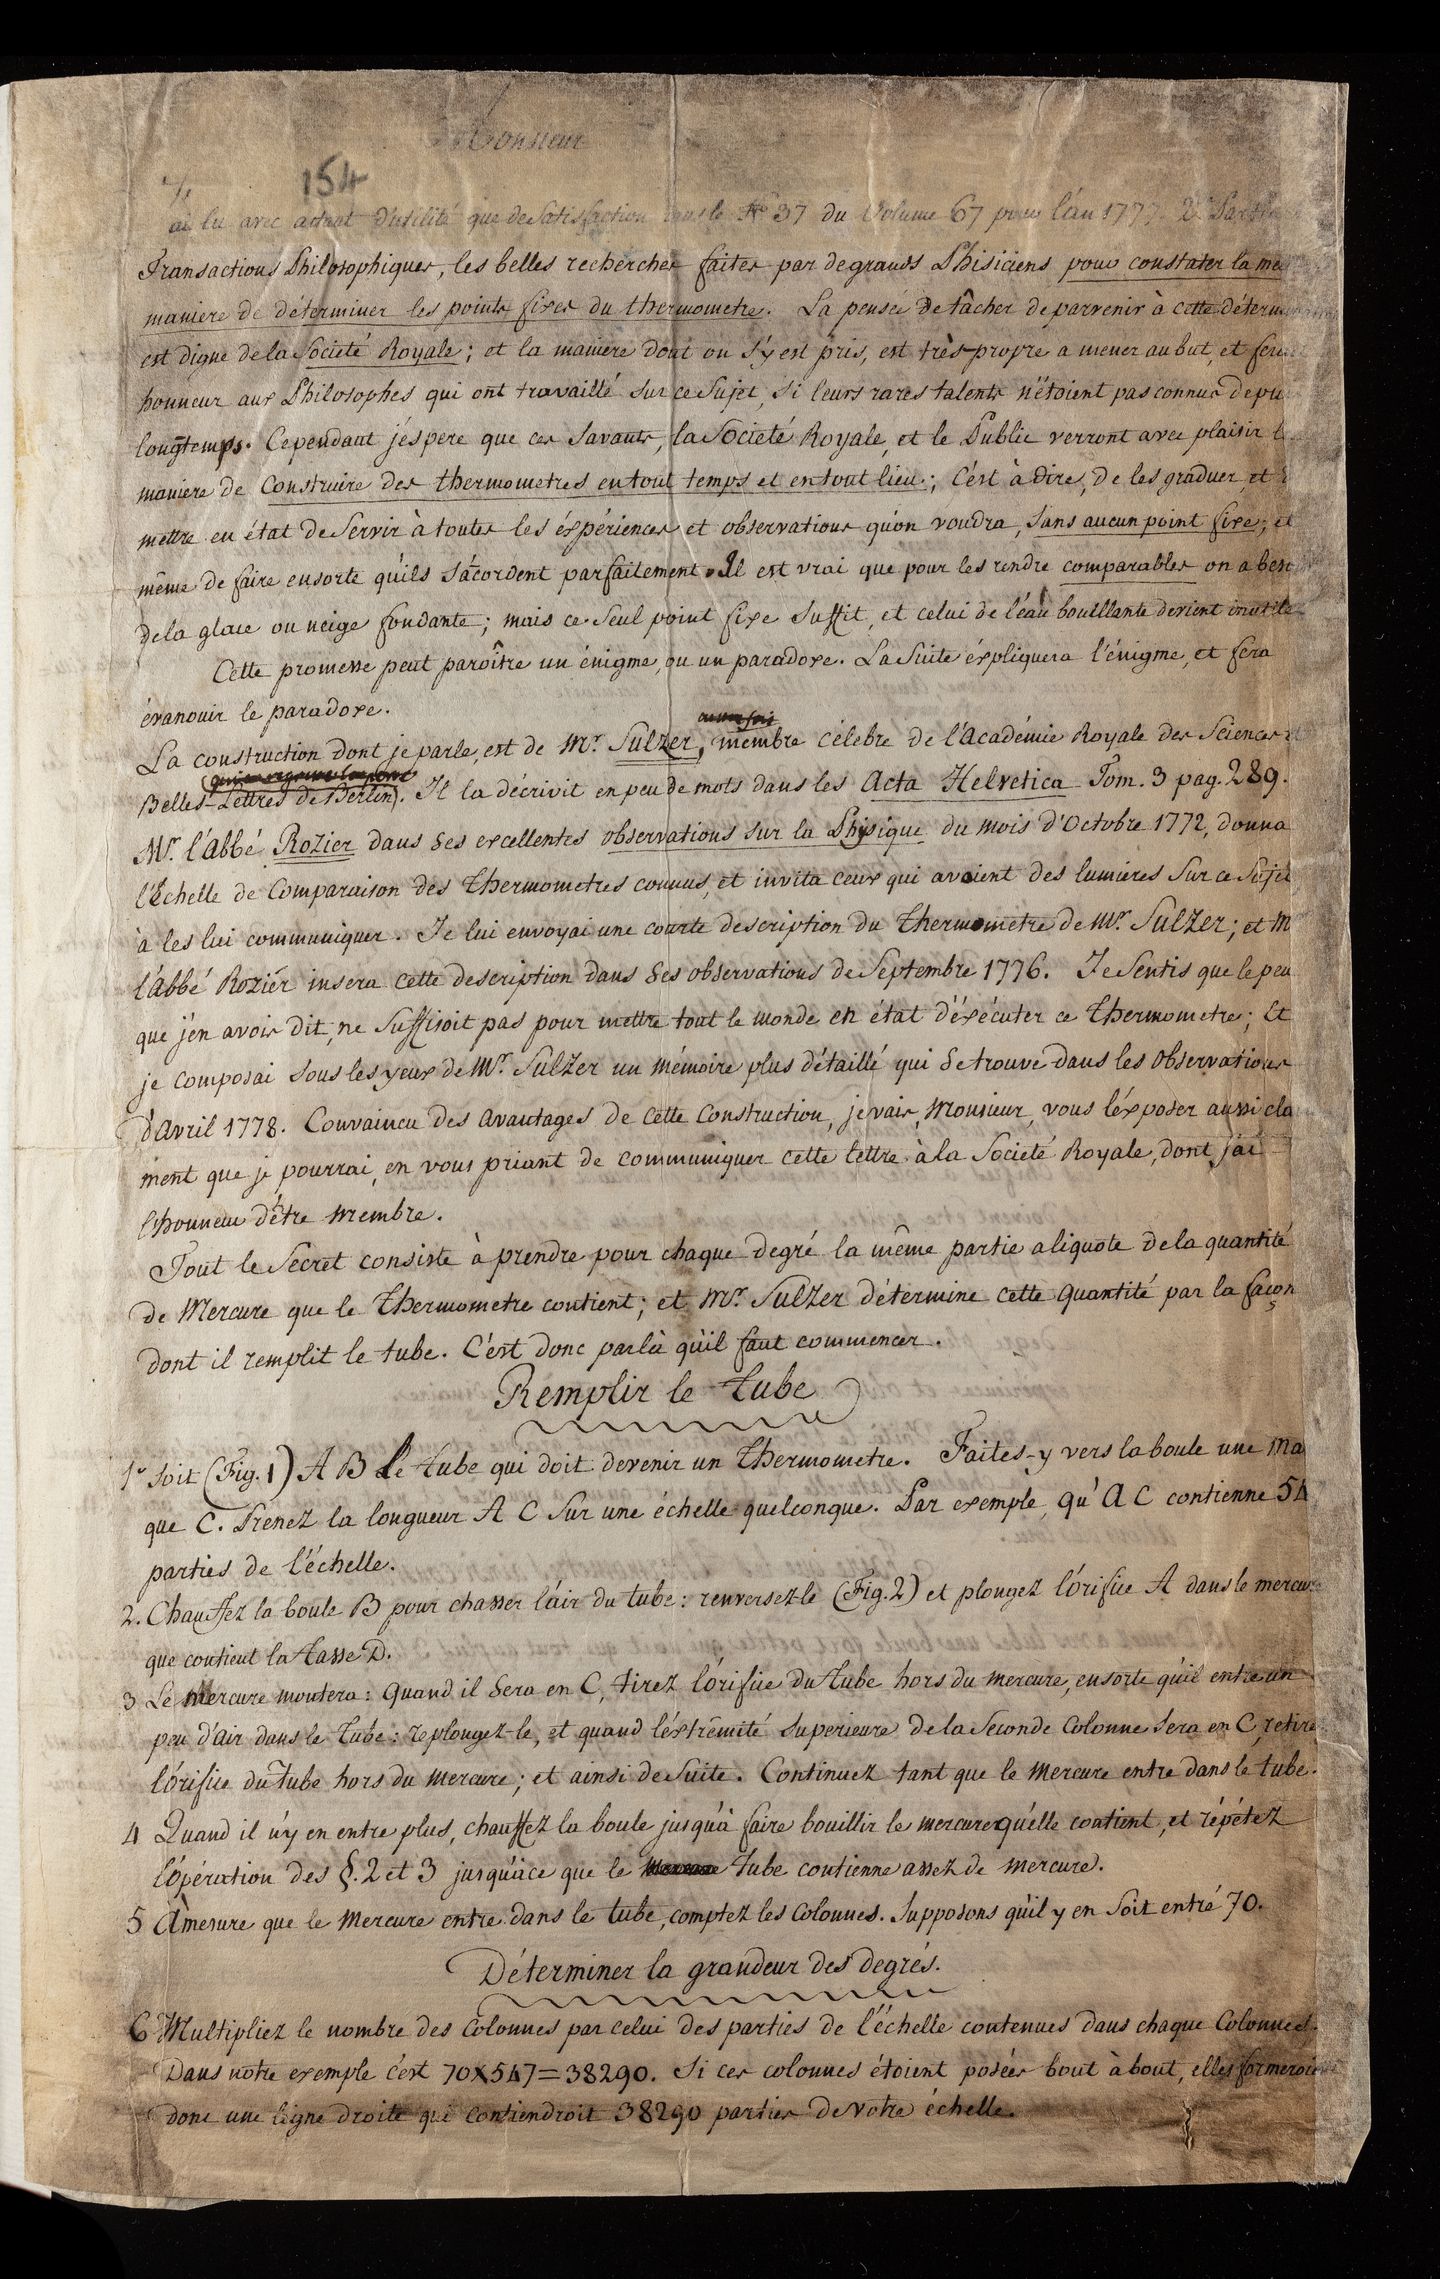 Monsieur
154
J'ai lu avec autant d'utilité que de Satisfaction le № 37 du Volume 67 pour l'an 1777. 2e
Transactions Philosophiques, les belles recherches faites par de grands Phisiciens pour constater la
maniere de déterminer les points fixes du thermometre. La pensée de tâcher de parvenir à cette
est digne de la Societé Royale; et la maniere dont on s'y est pris, est très propre a mener au but, et
honneur aux Philosophes qui ont travaillé sur ce Sujet, si leurs rares talents n'étoient pas connus
longtemps. Cependant j'éspere que ces Savants, la Societé Royale, et le Public verront avec plaisir
maniere de construire des thermometres en tout temps et en tout lieu; C'est à dire, de les graduer, et
mettre en état de Servir à toutes les éxpériences et observations qu'on voudra, sans aucun point fixe; et
même de faire ensorte qu'ils s'acordent parfaitement. Il est vrai que pour les rendre comparables on a
de la glace ou neige fondante; mais ce Seul point fixe Suffit, et celui de l'éau bouillante devient inutile
Cette promesse peut paroître un énigme, ou un paradoxe. La Suite éxpliquera l'énigme, et fera
évanouir le paradoxe.
La construction dont je parle, est de Mr. Sulzer, membre célebre de l'Académie Royale des Sciences
Belles-Lettres de Berlin. Il la décrivit en peu de mots dans les Acta Helvetica Tom. 3 pag. 289.
Mr. l'Abbé Rozier dans Ses excellentes observations sur la Physique du mois d'Octobre 1772, donna
l'Echelle de Comparaison des Thermometres connus, et invita ceux qui avoient des lumieres Sur ce Sujet
à les lui communiquer. Je lui envoyai une courte description du Thermometre de Mr. Sulzer; et M
l'Abbé Rozier insera cette description dans Ses observations de Septembre 1776. Je Sentis que le peu
que j'en avois dit, ne Suffisoit pas pour mettre tout le monde en état d'éxécuter ce Thermometre; Et
je composai sous les yeux de Mr. Sulzer un mémoire plus détaillé qui Se trouve dans les observations
d'Avril 1778. Convaincu des avantages de cette construction, je vais, Monsieur, vous l'éxposer aussi cla
ment que je pourrai, en vous priant de communiquer cette lettre à la Societé Royale, dont j'ai
l'honneur d'être membre.
Tout le Secret consiste à prendre pour chaque degré la même partie aliquote de la quantité
de Mercure que le Thermometre contient; et Mr. Sulzer détermine cette quantité par la façon
dont il remplit le tube. C'est donc par là qu'il faut commencer.
Remplir le Tube
1° Soit (Fig. 1) A B Le tube qui doit devenir un Thermometre. Faites-y vers la boule une Ma
que C. Prenez la longueur A C Sur une échelle quelconque. Par exemple, qu'A C contienne 54
parties de l'échelle.
2. Chauffez la boule B pour chasser l'air du tube: renversez-le (Fig. 2) et plongez l'orifice A dans le mercure
que contient la Tasse D.
3 Le Mercure montera: Quand il Sera en C, tirez l'orifice du tube hors du mercure, ensorte qu'il entre un
peu d'air dans le Tube: replongez-le, et quand l'éxtrêmité superieure de la Seconde colonne Sera en C, retire
l'orifice du tube hors du mercure; et ainsi de Suite. Continuez tant que le Mercure entre dans le tube.
4 Quand il n'y en entre plus, chauffez la boule jusqu'à faire bouillir le mercure qu'elle contient, et répétez
l'opération des §. 2 et 3 jusqu'àce que le tube contienne assez de mercure.
5 À mesure que le Mercure entre dans le tube, comptez les colonnes. Supposons qu'il y en Soit entré 70.
Déterminer la grandeur des degrés.
6 Multipliez le nombre des colonnes par celui des parties de l'échelle contenues dans chaque Colonne.
Dans notre exemple c'est 70×547=38290. Si ces colonnes étoient posées bout à bout, elles formeroient
donc une ligne droite qui contiendroit 38290 parties de votre échelle.